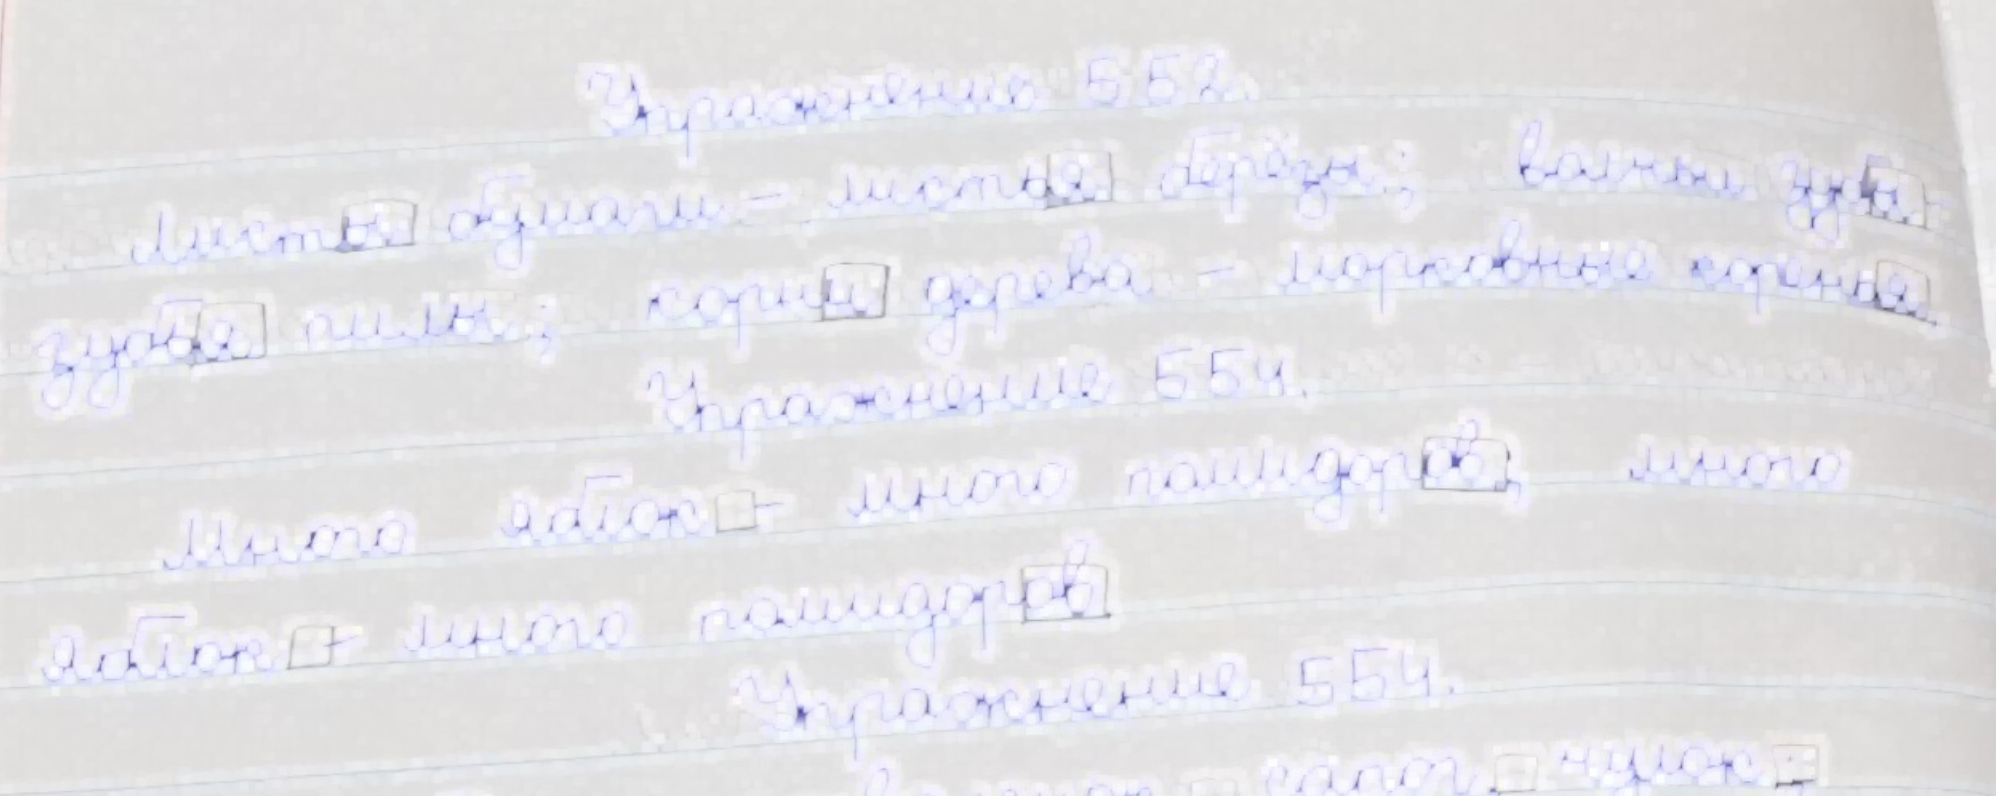 Упражнение 552.
Листы бумаги – листья берёзы; волчьи зубы –
зубья пилы; корни дерева – морковные коренья
Упражнение 554.
Много яблок – много помидоров, много
яблок – много помидоров
Упражнение 554.
сапог чулок